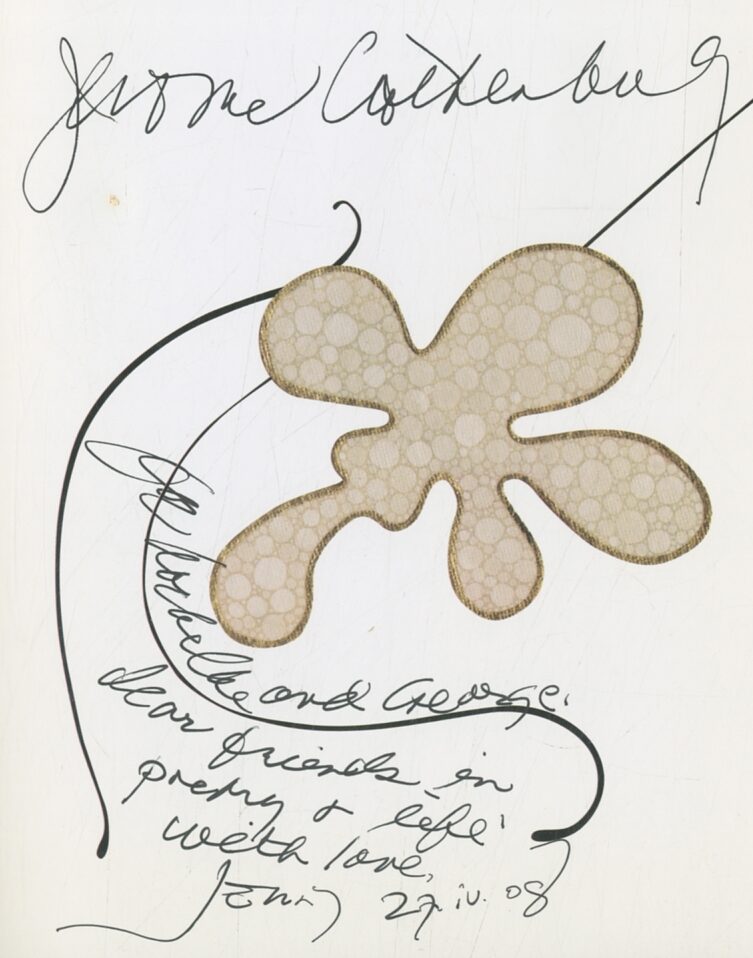 Jerome Rothenberg
for Rochelle and George
dear friends in
poetry & life
with love,
Jerry 27.iv.08